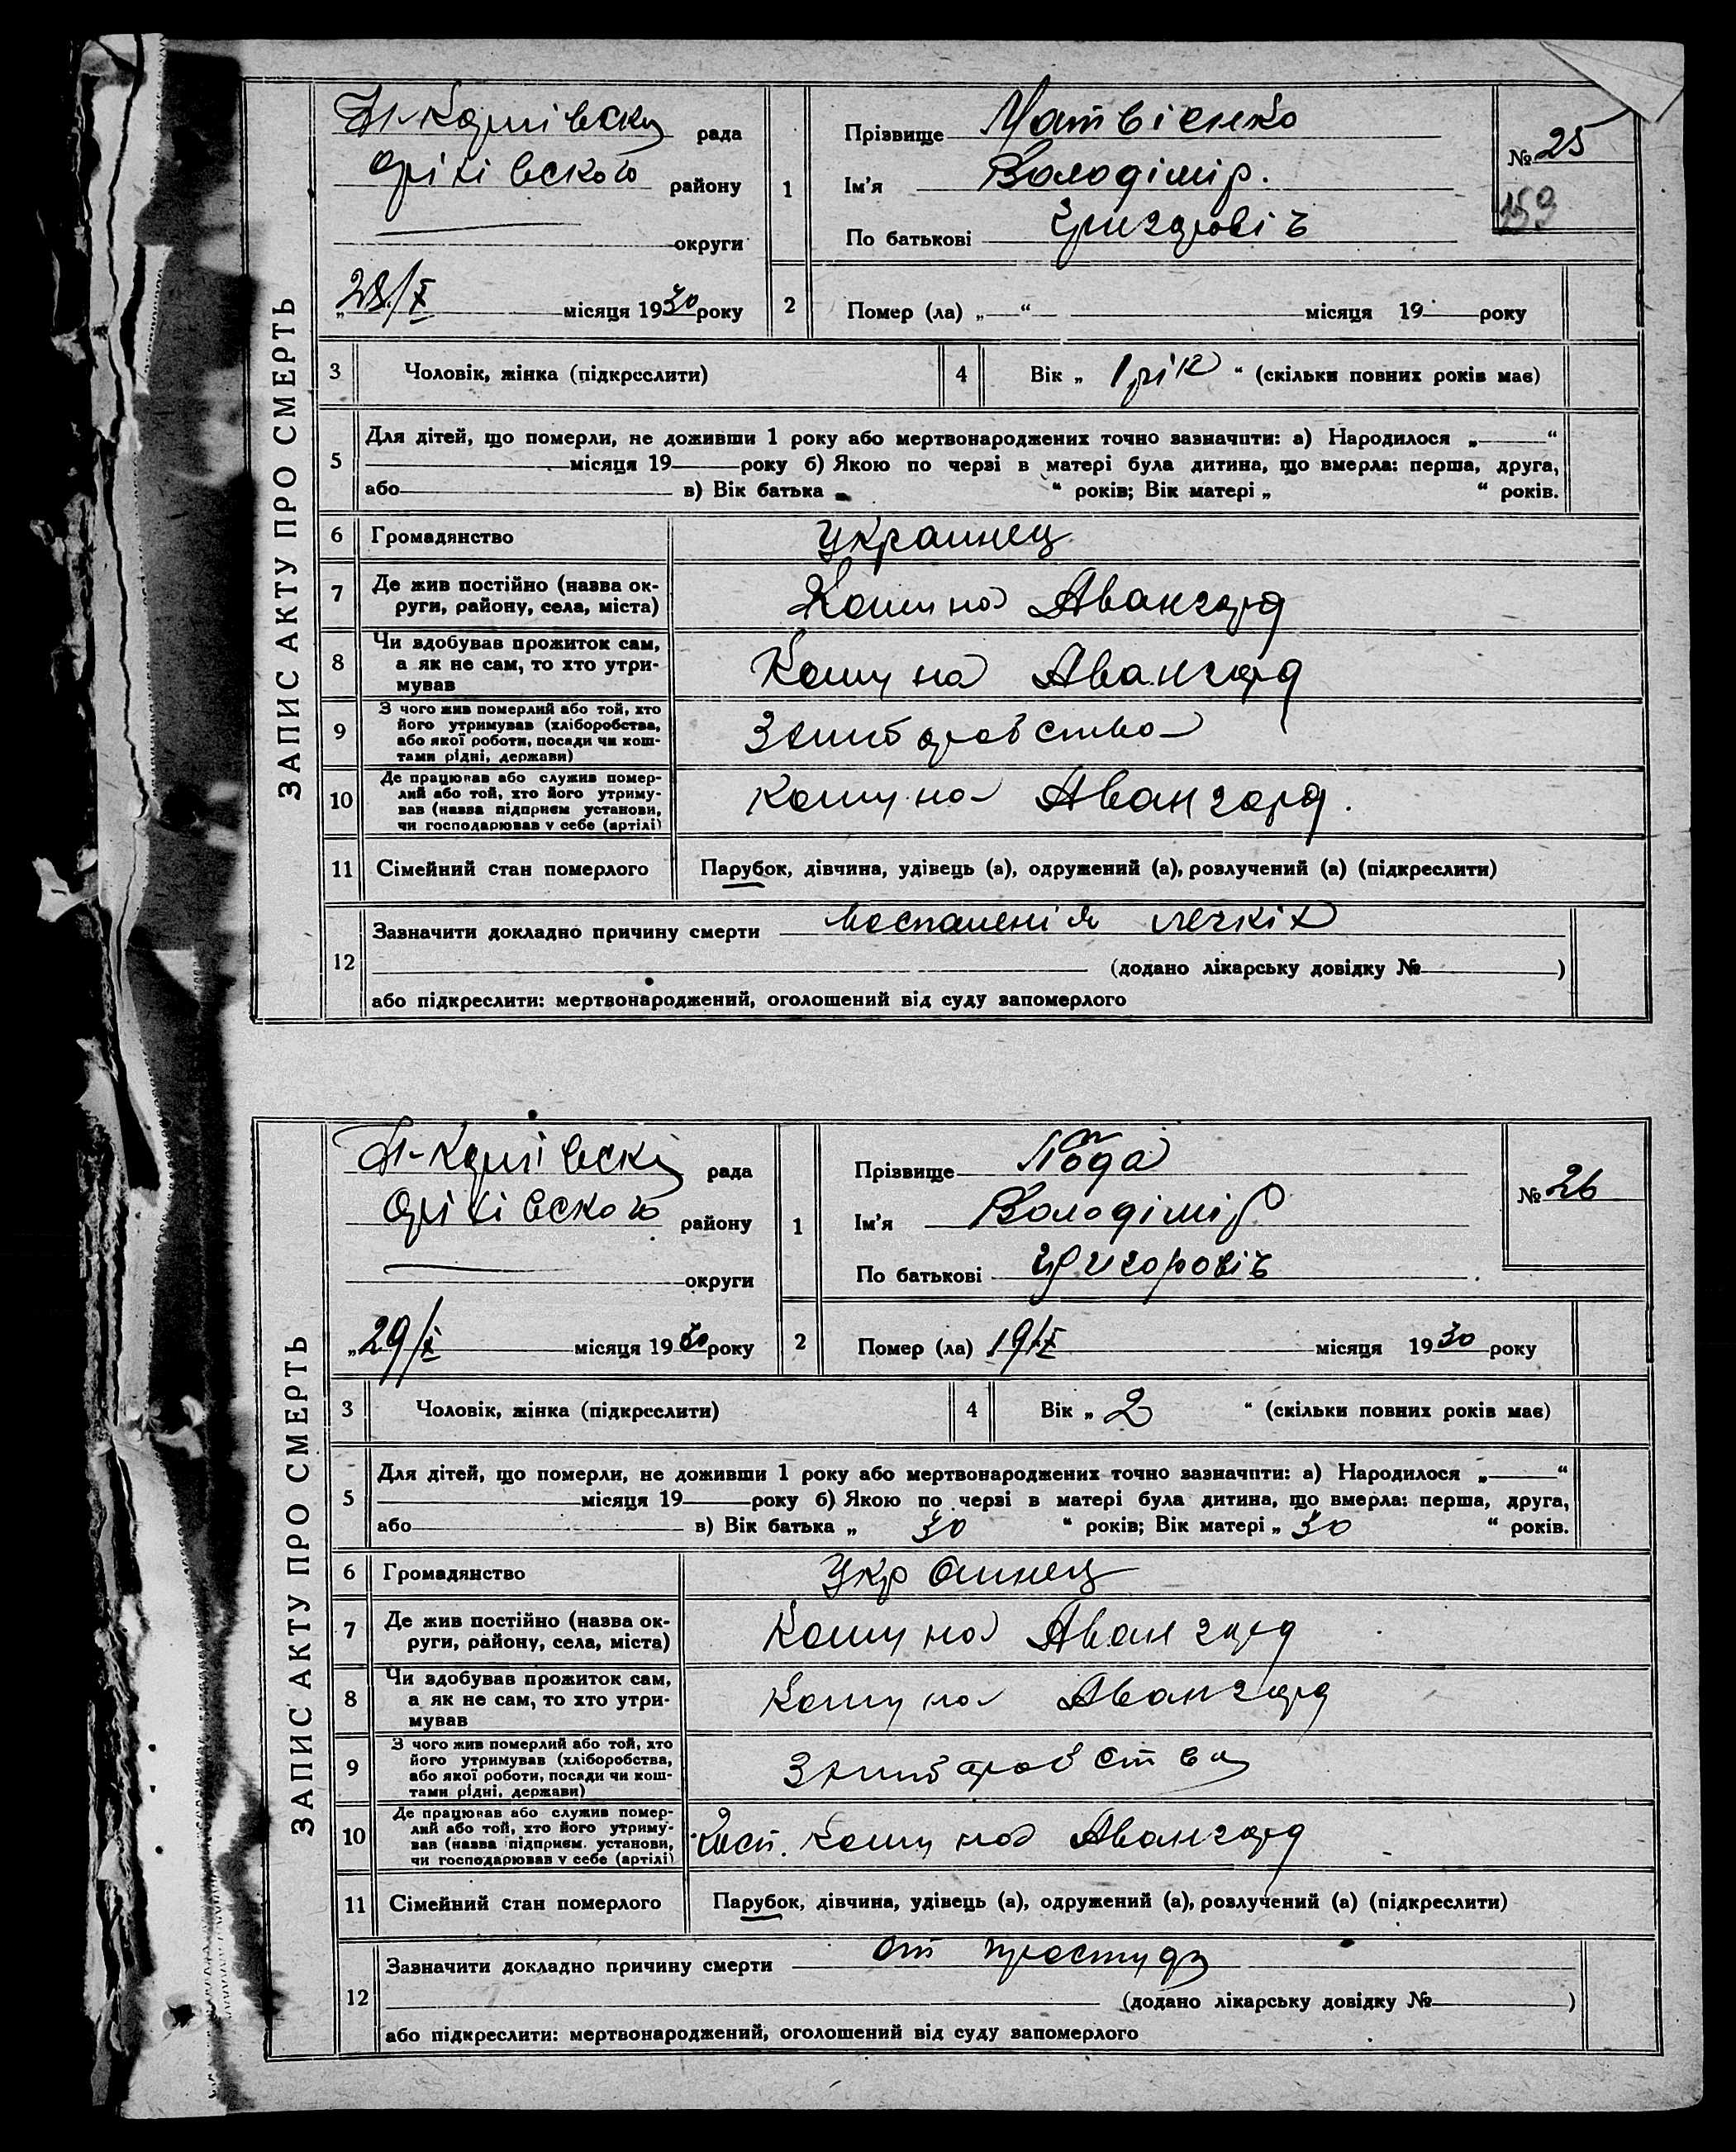 ЗАПИС АКТУ ПРО СМЕРТЬ
рада
Оріхівского району
округи
„28/X місяця 1930 року
1
Прізвище Матвієнко
Ім'я Володімір.
По батькові Григоровіч
№ 25
159
2 Помер (ла) „ “ місяця 19 року
3 Чоловік, жінка (підкреслити)
4 Вік „ 1 рік “ (скільки повних років має)
5
Для дітей, що померли, не доживши 1 року або мертвонароджених точно зазначити: а) Народилося „ “
місяця 19 року б) Якою по черзі в матері була дитина, що вмерла: перша, друга,
або в) Вік батька „ “ років; Вік матері „ “ років.
6 Громадянство Украинец
7 Де жив постійно (назва ок-
руги, району, села, міста) Комуна Авангард
8 Чи здобував прожиток сам,
а як не сам, то хто утри-
мував Комуна Авангард
9 З чого жив померлий або той, хто
його утримував (хліборобства,
або якої роботи, посади чи кош-
тами рідні, держави)
10 Де працював або служив помер-
лий або той, хто його утриму-
вав (назва підприєм установи,
чи господарював у себе (артілі) Комуна Авангард.
11 Сімейний стан померлого Парубок, дівчина, удівець (а), одружений (а), розлучений (а) (підкреслити)
12
Зазначити докладно причину смерти Воспаленія легкіх
(додано лікарську довідку № )
або підкреслити: мертвонароджений, оголошений від суду запомерлого
ЗАПИС АКТУ ПРО СМЕРТЬ
рада
Оріхівского району
округи
„29/X місяця 1930 року
1
Прізвище
Ім'я Володімір
По батькові Григоровіч
№ 26
2 Помер (ла) 19/X місяця 1930 року
3 Чоловік, жінка (підкреслити)
4 Вік „ 2 “ (скільки повних років має)
5
Для дітей, що померли, не доживши 1 року або мертвонароджених точно зазначити: а) Народилося „ “
місяця 19 року б) Якою по черзі в матері була дитина, що вмерла: перша, друга,
або в) Вік батька „ 30 “ років; Вік матері „ 30 “ років.
6 Громадянство Украинец
7 Де жив постійно (назва ок-
руги, району, села, міста) Комуна Авангард
8 Чи здобував прожиток сам,
а як не сам, то хто утри-
мував Комуна Авангард
9 З чого жив померлий або той, хто
його утримував (хліборобства,
або якої роботи, посади чи кош-
тами рідні, держави)
10 Де працював або служив помер-
лий або той, хто його утриму-
вав (назва підприєм. установи,
чи господарював у себе (артілі) Комуна Авангард
11 Сімейний стан померлого Парубок, дівчина, удівець (а), одружений (а), розлучений (а) (підкреслити)
12
Зазначити докладно причину смерти от простуды
(додано лікарську довідку № )
або підкреслити: мертвонароджений, оголошений від суду запомерлого